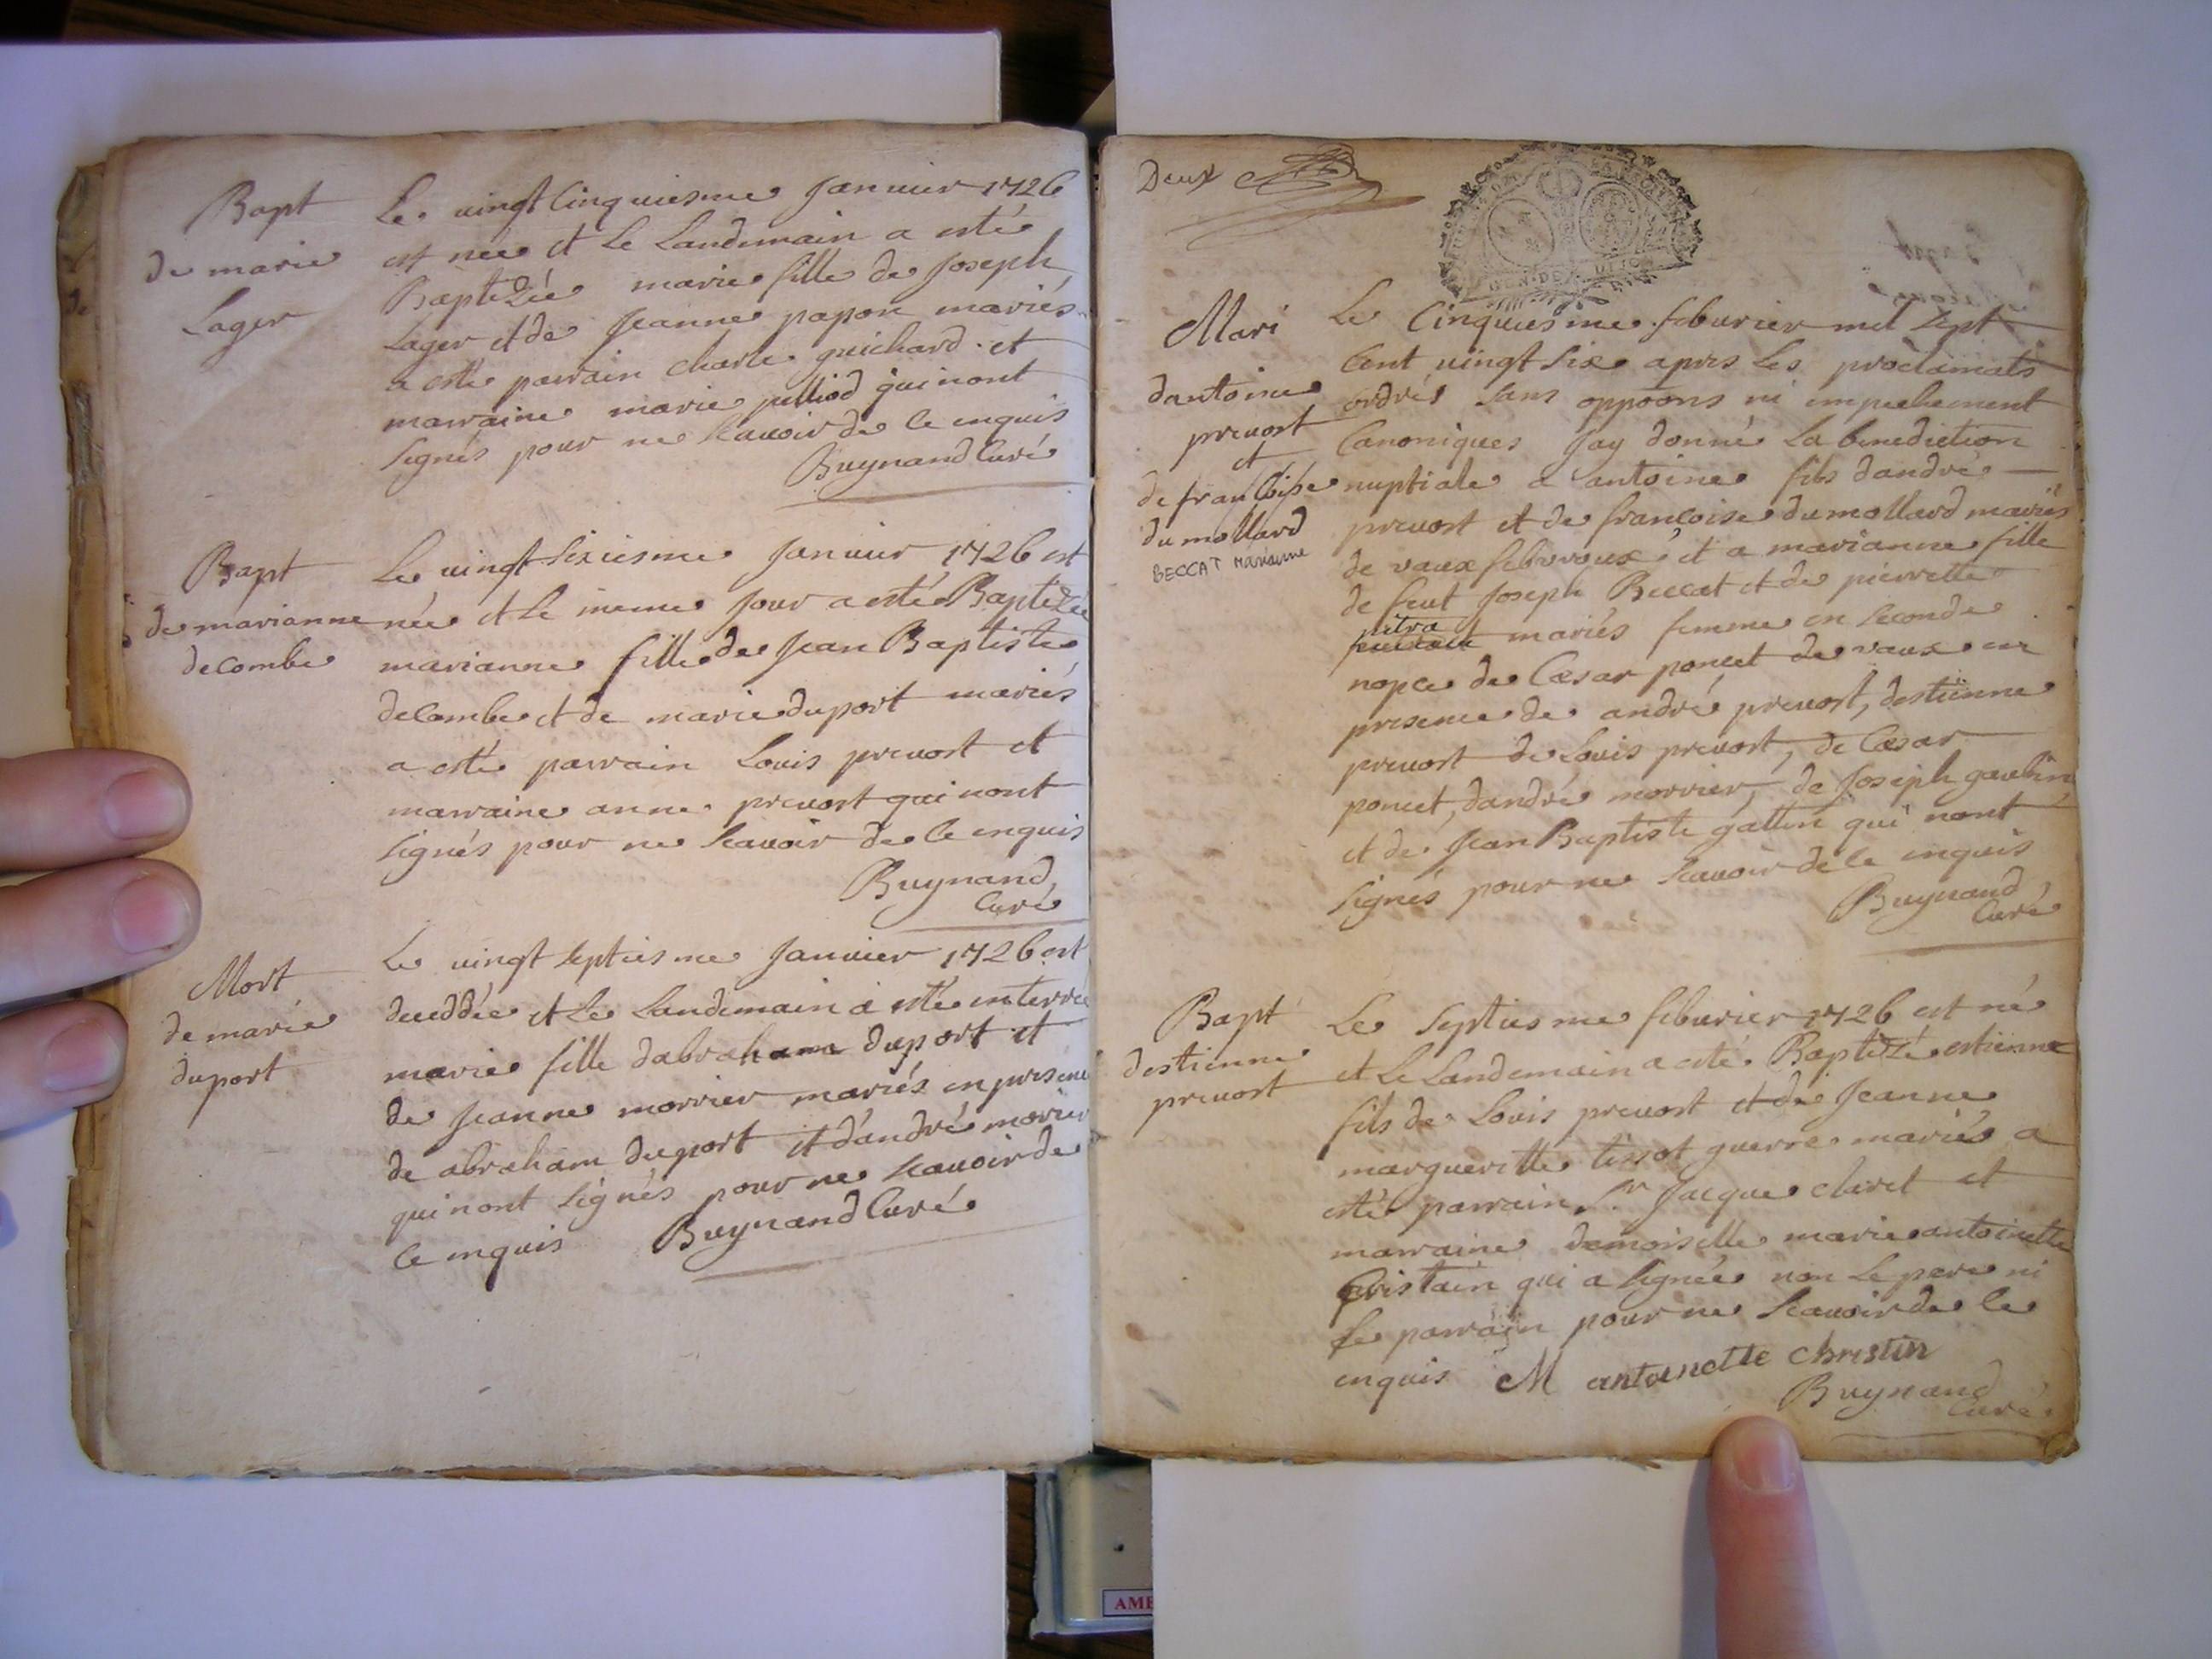 Bapt
de marie
Lager
Le vingt cinquiesme Janvier 1726
est neé et le Landemain a esté
Baptizée marie fille de Joseph
Lager et de Jeanne papon mariés
a esté parrain charle guichard et
marraine marie pelliod qui nont
signés pour ne scauoir de ce enquis
Buynand Curé
Bapt
de marianne
decombe
Le vingt sixiesme Janvier 1726 est
née et le meme jour a esté Baptizée
marianne fille de Jean Baptiste
decombe et de marie duport mariés
a esté parrain Louis preuost et
marraine anne preuost qui nont
signés pour ne scauoir de ce enquis
Buynand
Curé
Mort
de marie
duport
Le vingt septiesme Janvier 1726 est
deceddée et Le Landemain a esté enterrée
marie fille dabraham duport et
de Jeanne morrier mariés en presence
de abraham duport et dandré morier
qui nont signés pour ne scauoir de
ce enquis Buynand Curé
Deux
GEN DE
Mari
dantoine
preuost
et
de francoise
du mollard
BECCAT Marianne
Le Cinquiesme feburier mil sept
cent vingt six apres les proclamats
ordrés sans oppoons ni empechement
Canoniques Jay donné La benediction
nuptiale a antoine fils dandré
preuost et de francoise dumollard mariés
de vaux febvroux et a marianne fille
de feut Joseph Beccat et de pierrette
pitra
mariés femme en seconde
nopce de Cæsar poncet de vaux en
presence de andré preuost, destienne
preuost de Louis preuost, de Cæsar
poncet, dandré morrier, de Joseph gaubin
et de Jean Baptiste gallin qui nont
signés pour ne scauoir de ce enquis
Buynand
Curé
Bapt
destienne
preuost
Le Septiesme feburier 1726 est né
et Le Landemain a esté Baptizé estienne
fils de Louis preuost et de Jeanne
margueritte tissot guerre mariés a
esté parrain Sr. Jacque claret et
marraine demoiselle marie antoinette
Cristain qui a signée non Le pere ni
Le parrain pour ne scauoir de ce
enquis M antoinette christin
Buynand
Curé
AME